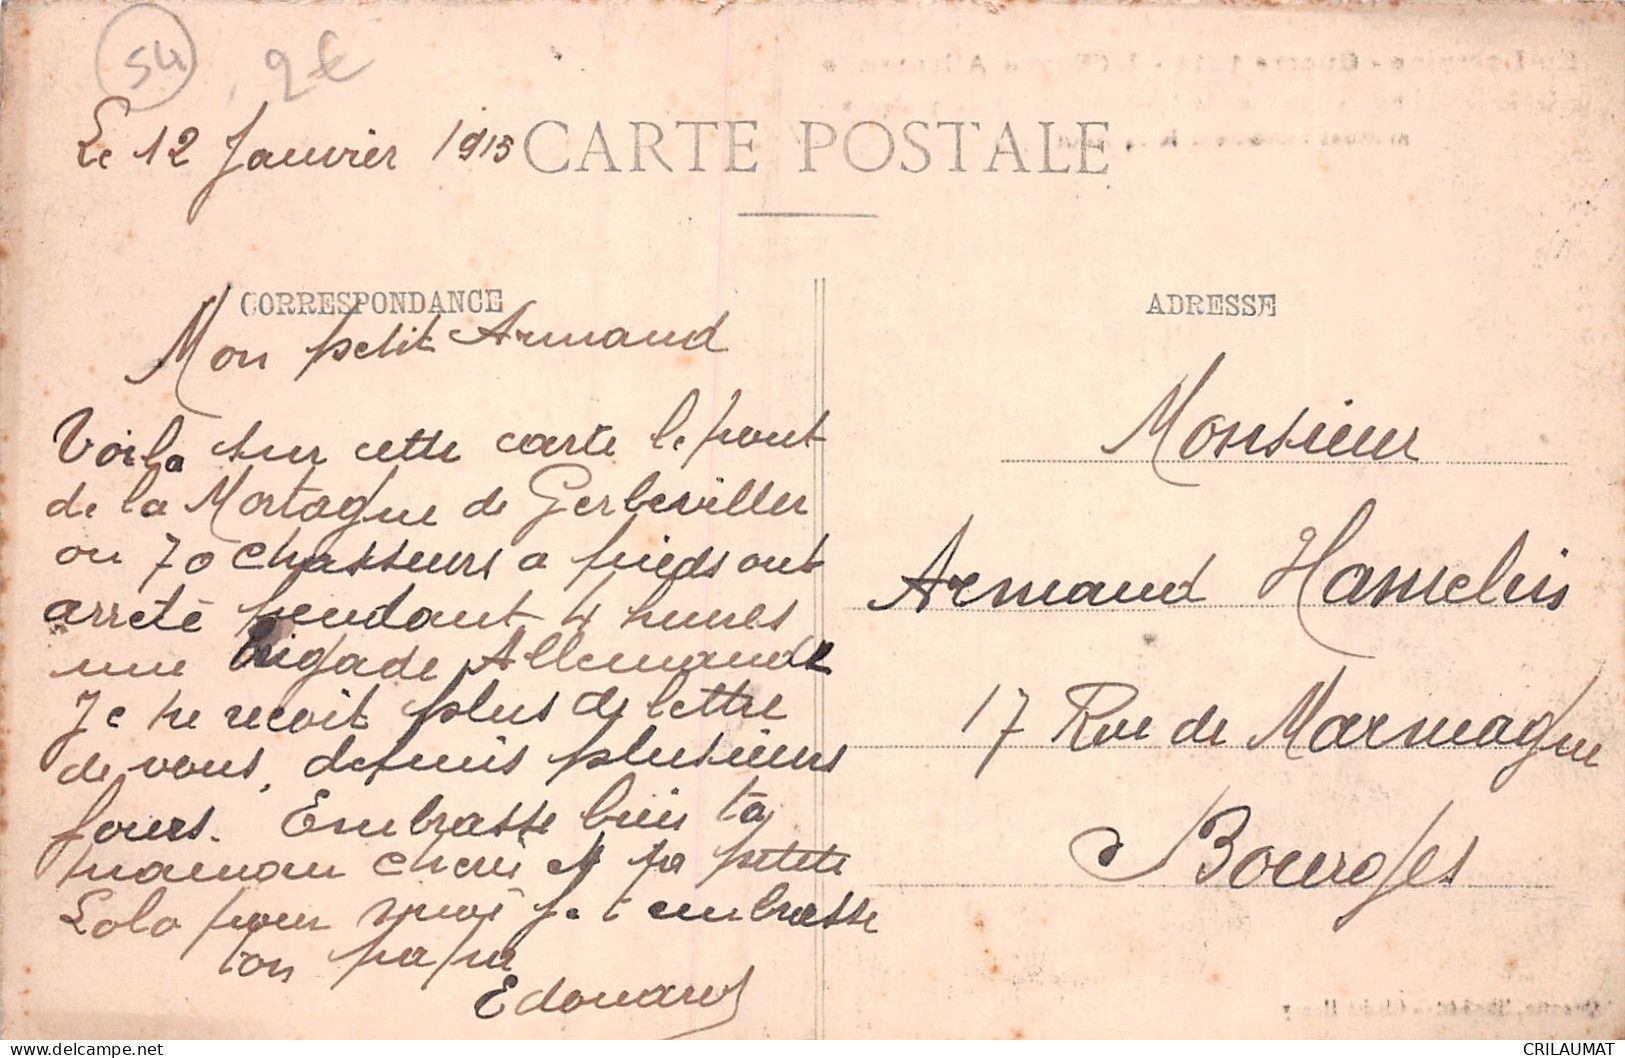 54
, 2€
Le 12 Janvier 1915
CARTE POSTALE
CORRESPONDANCE
Mon petit Armand
Voila sur cette carte le pont
de la Mortagne de Gerbeviller
ou 70 chasseurs a pieds ont
arreté pendant 4 heures
une brigade Allemande
Je ne recoit plus de lettre
de vous, depuis plusieurs
jours. Embrasse bien ta
maman cheri et ta petite
Lolo pour moi je t embrasse
ton papa
Edouard
ADRESSE
Monsieur
Armand Hamelin
17 Rue de Marmagne
Bourges
CRILAUMAT